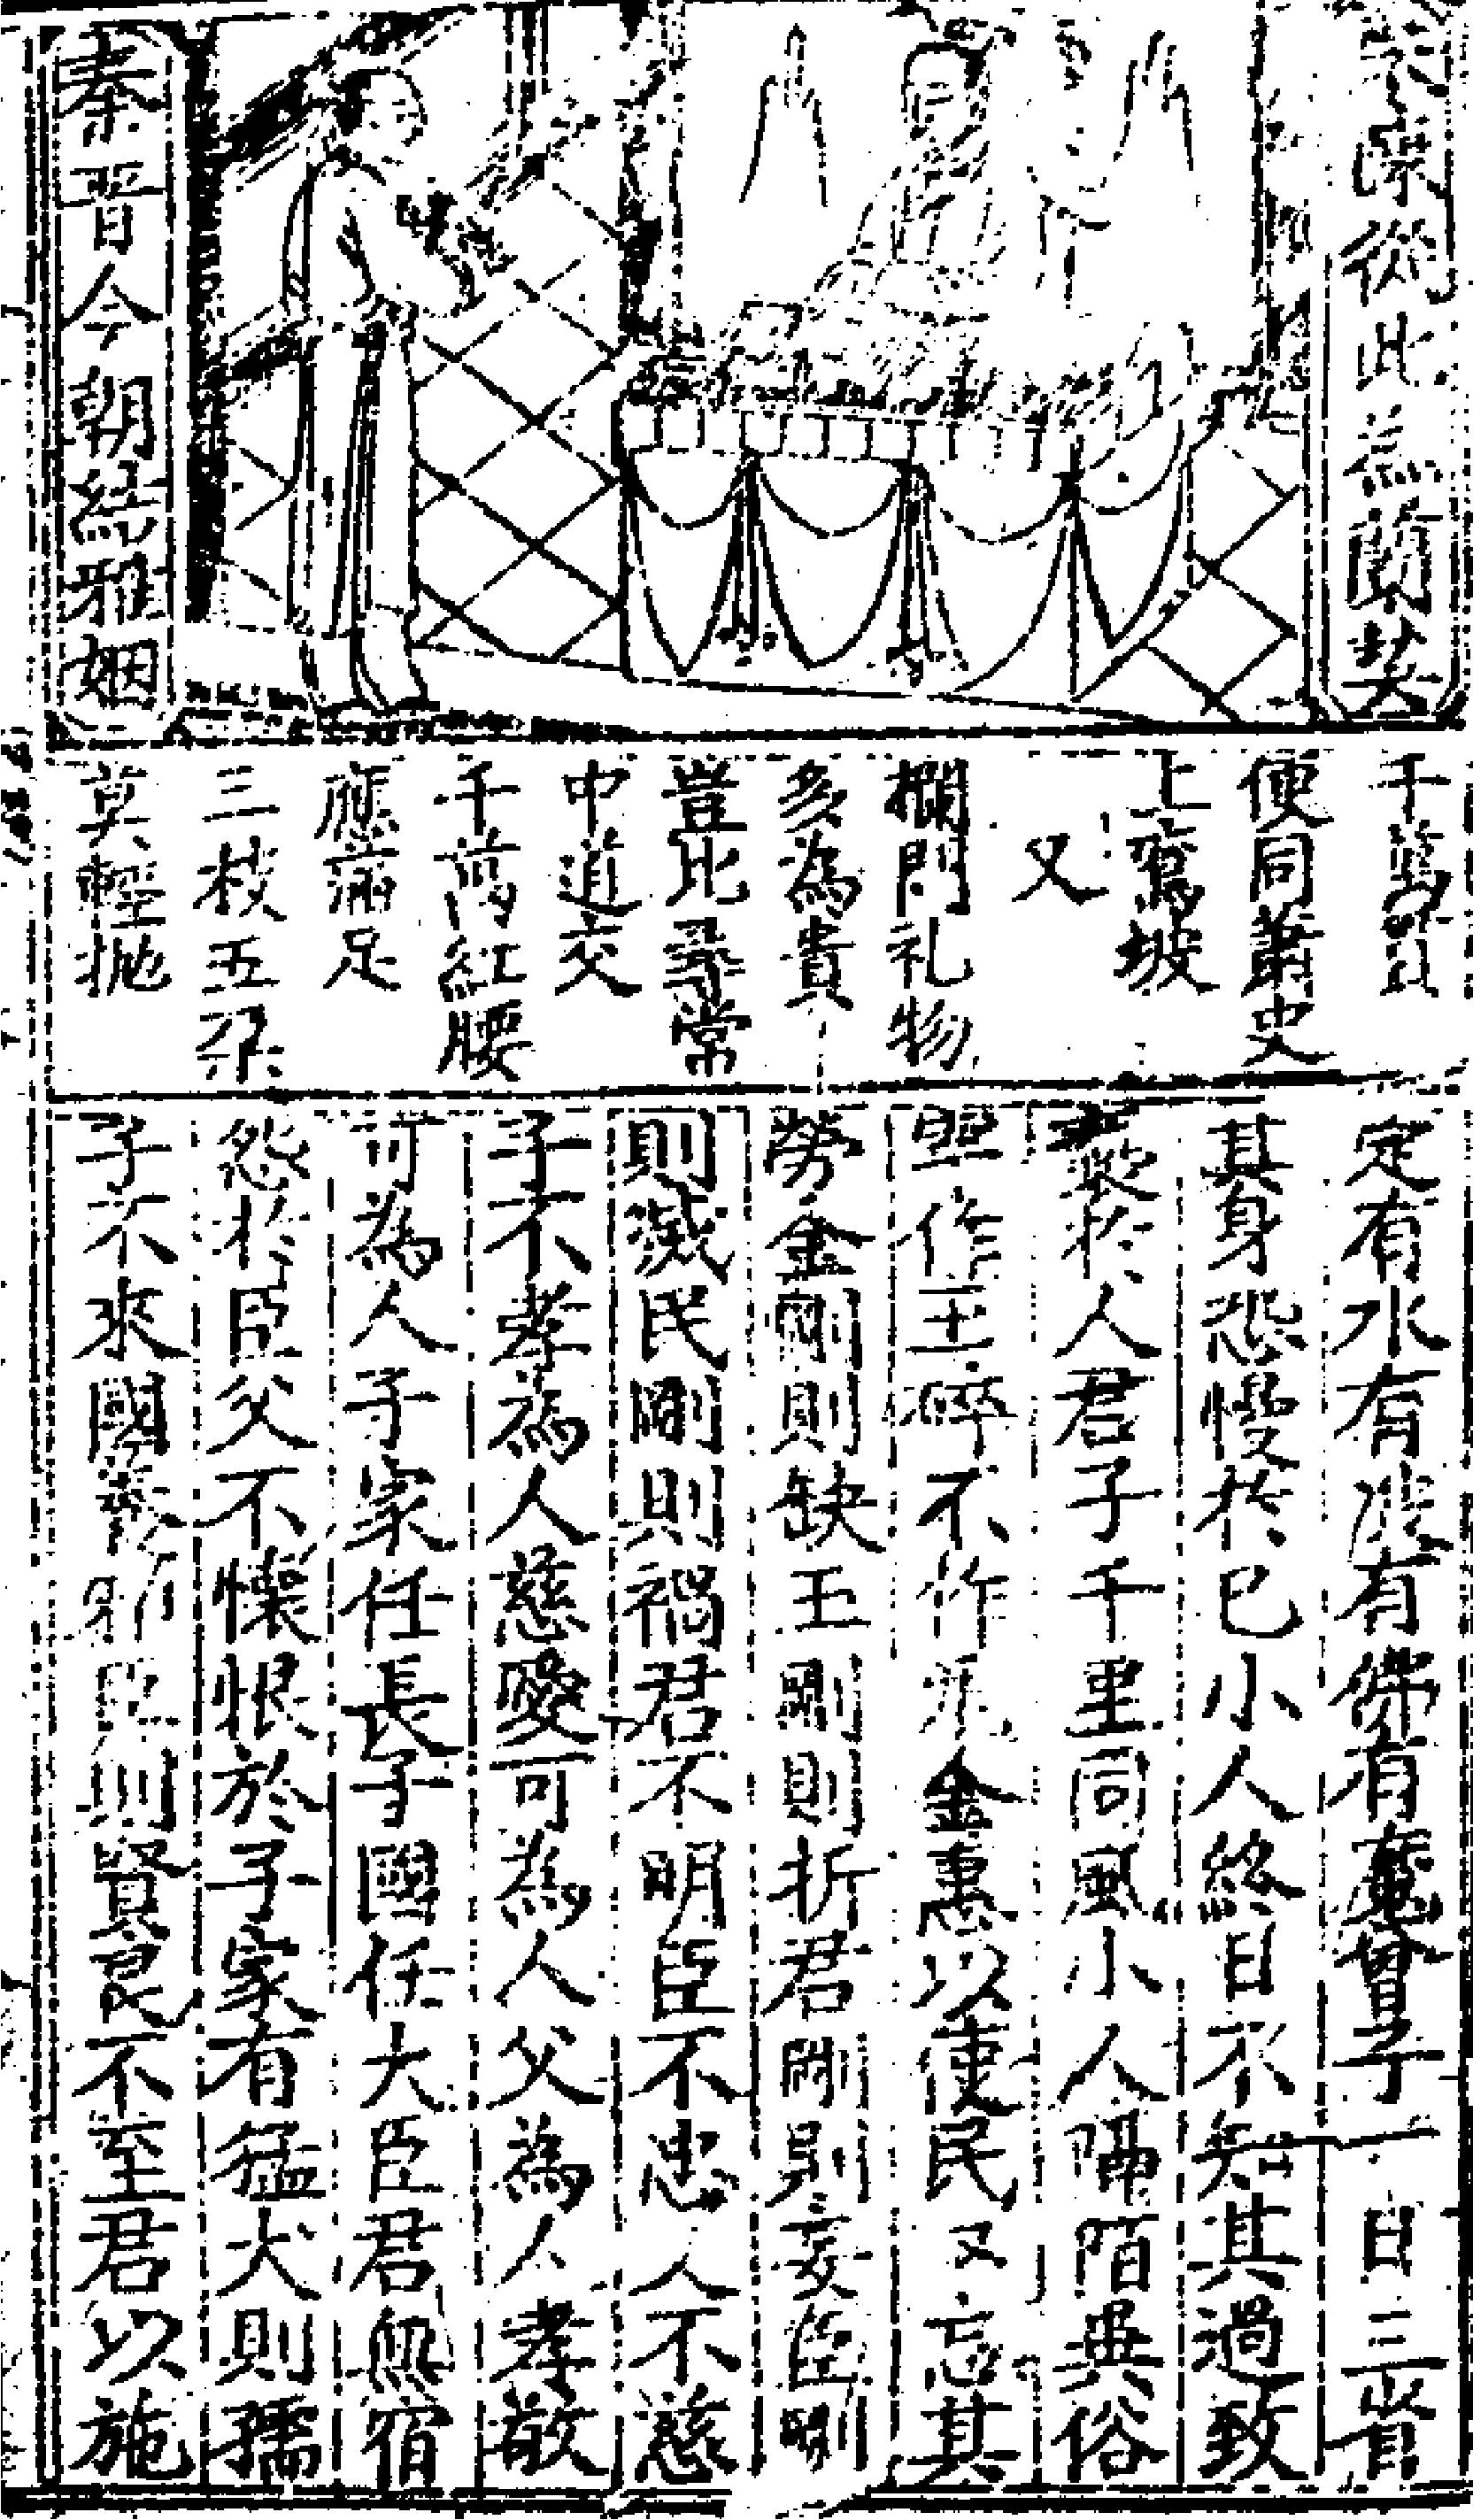 朱陳從此為蘭契
秦晉今朝結雅姻
千萬貫
便同蕭史
上鸞坡
又
欄門礼物
多為貴
豈比尋常
中道交
千萬紅腰
應滿足
三枝五朵
莫輕拋
定有水有陸有佛有魔曾子一日三省
其身恐慢於己小人終日不知其過致
怨於人君子千里同風小人隔陌異俗
作玉碎不作瓦金惠以使民又忘其
勞金剛則缺玉剛則折君剛則妄臣剛
則滅民剛則禍君不明臣不忠人不慈
子不孝為人慈愛可為人父為人孝敬
可為人子家任長子國任大臣君無宿
怨於臣父不懷恨於子家有猛犬則孺
子不來國有邪臣則賢良不至君以施